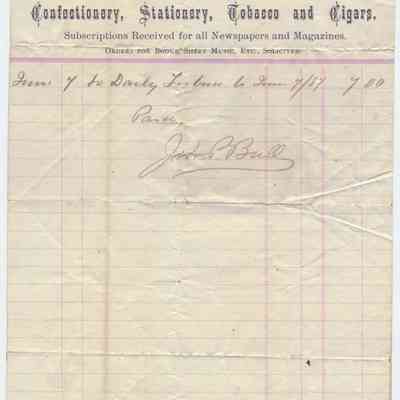 Confectionery, Stationery, Tobacco and Cigars.
Subscriptions Received for all Newspapers and Magazines.
Orders for Books, Sheet Music, Etc., Solicited.
June 7 to Daily Tribune to June 7/87 7 00
Paid,
Jno P. Bull